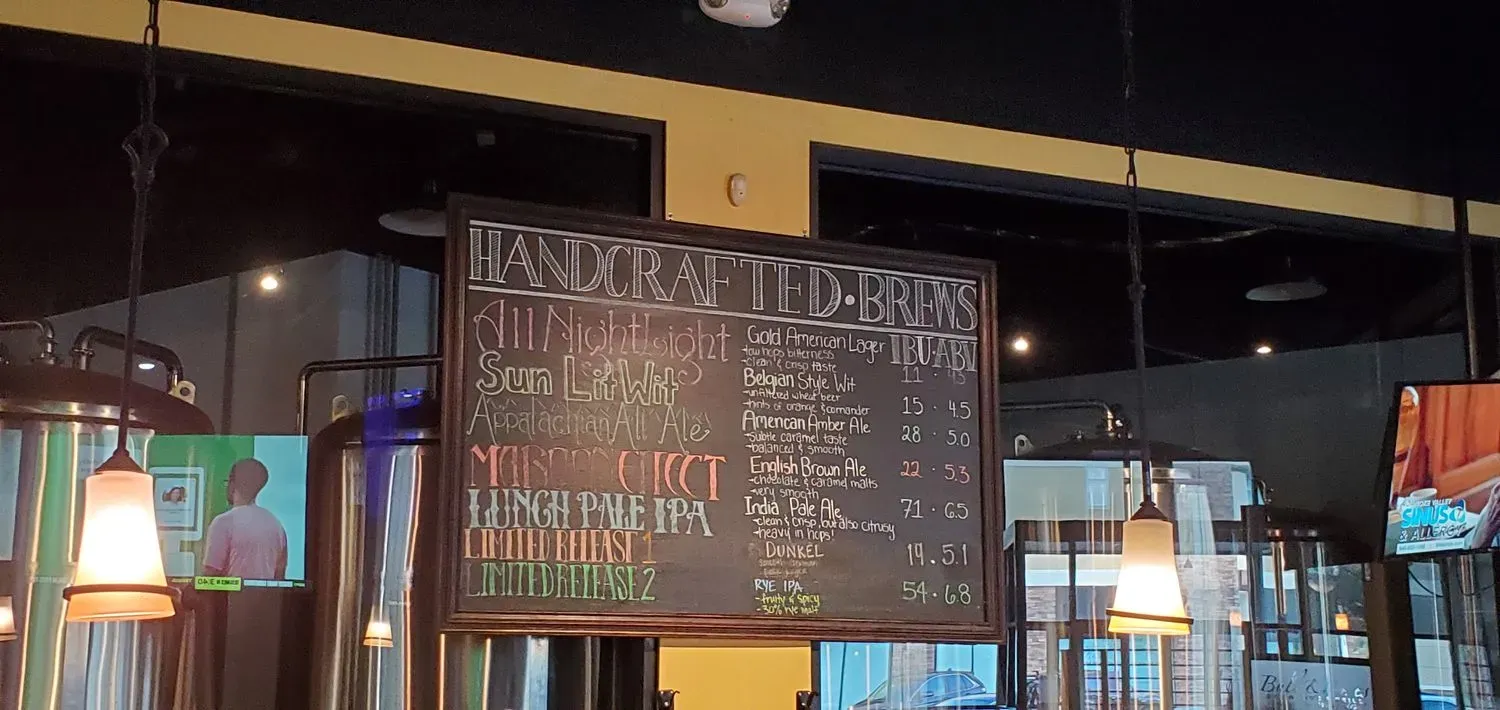 HANDCRAFTED · BREWS
IBU · ABV
All Nightlight
Gold American Lager
-low hops bitterness
-clean & crisp taste
11 · 4.5
Sun Lit Wit
Belgian Style Wit
-unfiltered wheat beer
-hints of orange & coriander
15 · 4.5
Appalachian All Ale
American Amber Ale
-Subtle caramel taste
-balanced & smooth
28 · 5.0
EFFECT
English Brown Ale
-chocolate & caramel malts
-very smooth
22 · 5.3
LUNCH PALE IPA
India Pale Ale
-clean & crisp, but also citrusy
-heavy in hops!
71 · 6.5
LIMITED RELEASE 1
DUNKEL
19 . 5.1
LIMITED RELEASE 2
RYE IPA
-fruity & spicy
-30% rye malt
54 · 6.8
VALLEY
SINUS
& ALLERGY